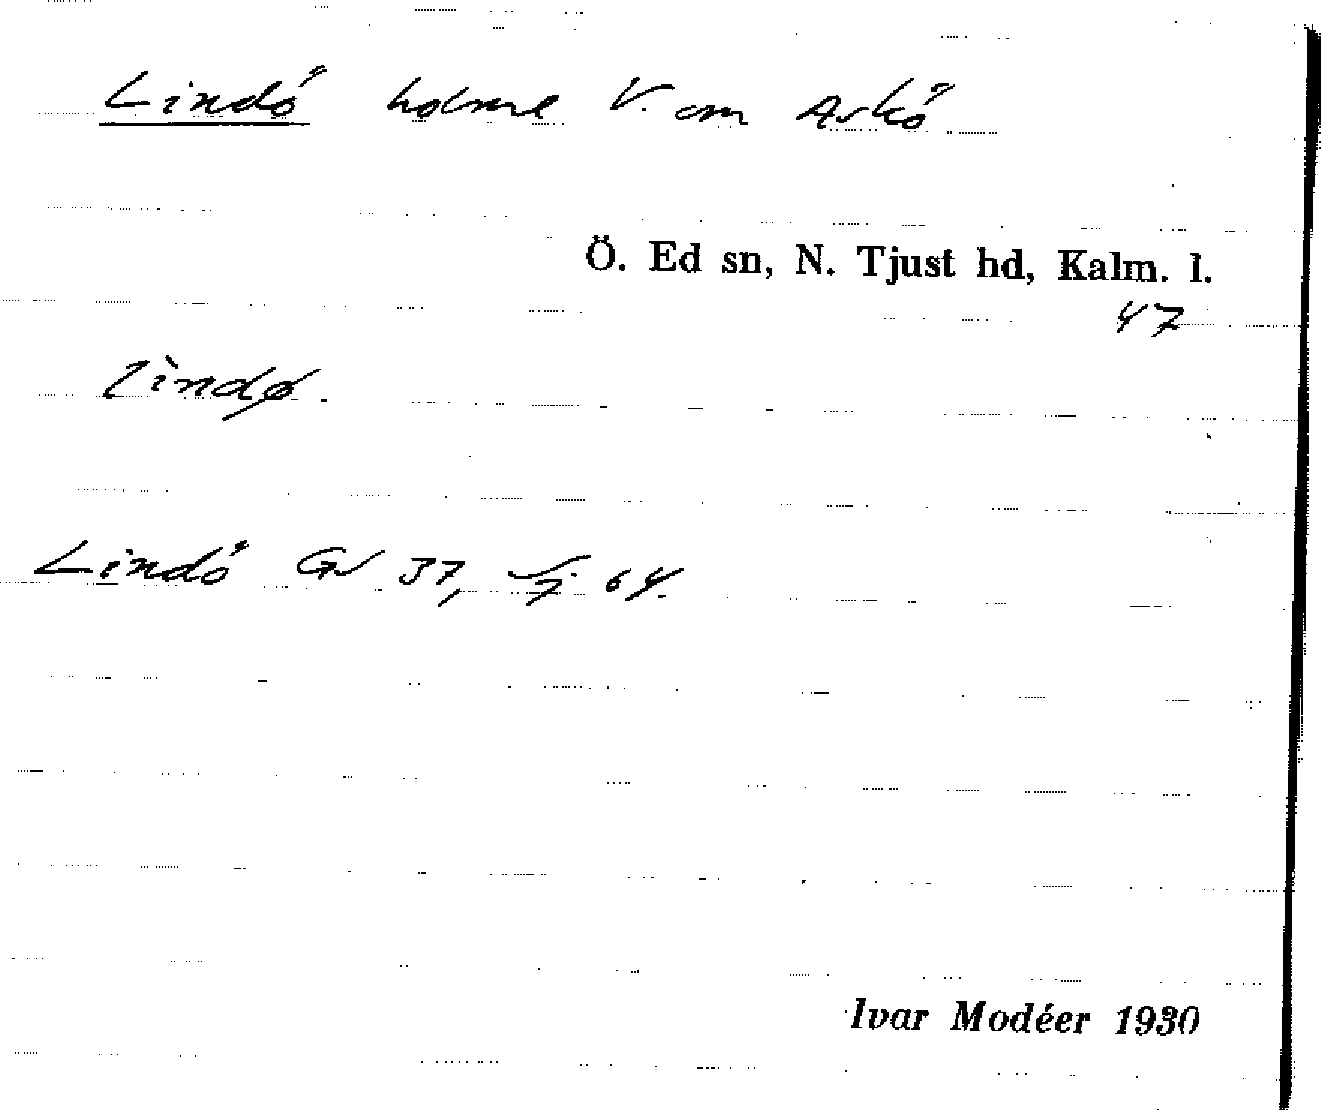 Lindö holme V. om Askö
Ö. Ed sn, N. Tjust hd, Kalm. l.
47
lìndø.
Lindö Gs 37, Sj. 64.
Ivar Modéer 1930